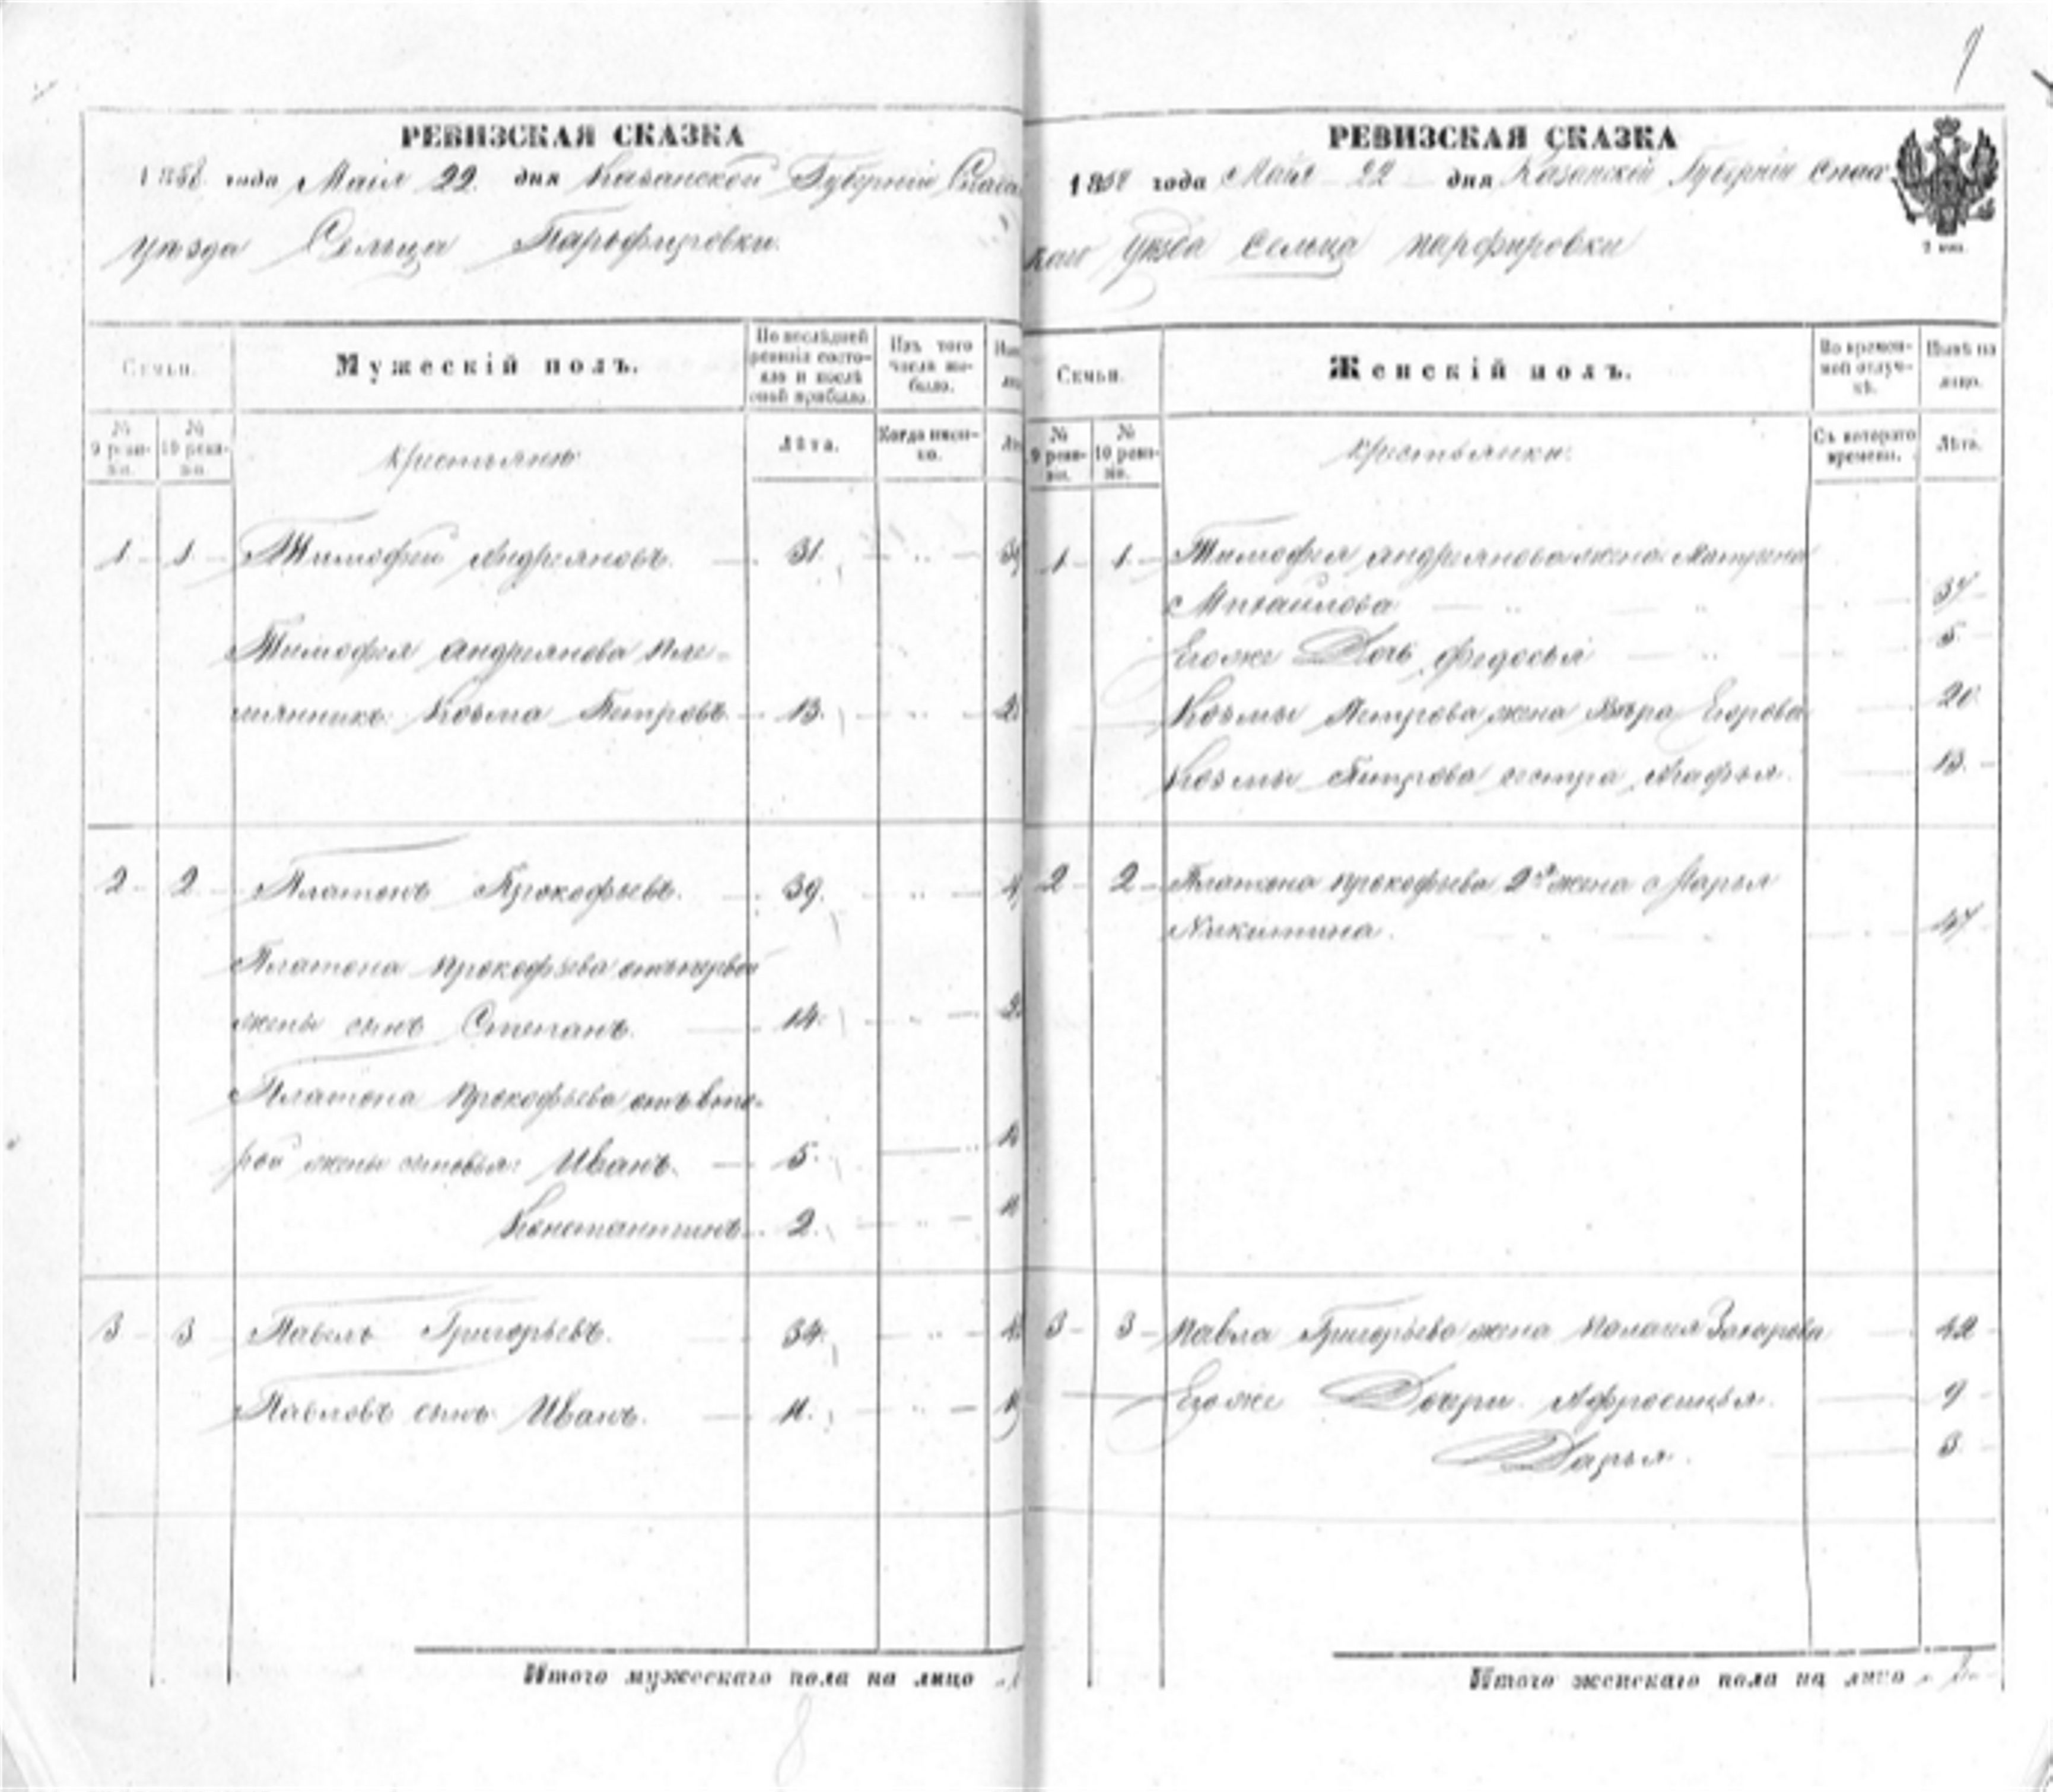 9
РЕВИЗСКАЯ СКАЗКА
1858 года Маія 22 дня Казанской Губерніи Спаса
уѣзда Сельца Парфировки.
Семьи.
Мужескій полъ.
По послѣдней ревизіи состояло и послѣ оной прибыло.
Изъ того числа выбыло.
№ 9 ревизіи.
№ 10 ревизіи.
Крестьяне
Лѣта.
Когда именно.
1 1 Тимофей Андреяновъ. 31.
Тимофея Андреянова пле-
мянникъ Козьма Петровъ 13.
2 2 Платонъ Прокофьевъ. 39.
Платона Прокофьева отъ первой
жены сынъ Степанъ. 14.
Платона Прокофьева отъ вто-
рой жены сыновья: Иванъ. 5.
Константинъ 2.
3 3 Павелъ Григорьевъ. 34.
Павловъ сынъ Иванъ. 11.
Итого мужескаго пола на лицо
8
РЕВИЗСКАЯ СКАЗКА
1858 года Майя 22 дня Казанской Губерніи Спас
каго Уѣзда Сельца Парфировки
Семьи.
Женскій полъ.
Во временной отлучкѣ.
Нынѣ на лицо.
№ 9 ревизіи.
№ 10 ревизіи.
Крестьянки.
Съ котораго времени.
Лѣта.
1 1 Тимофея Андреянова жена Матрена
Михайлова 37
Егоже Дочь Федосья 5
Козьмы Петрова жена Вѣра Егорова 20
Козьмы Петрова сестра Агафья. 13.
2 2 Платона Прокофьева 2я жена Марья
Никитина. 47
3 3 Павла Григорьева жена Палагея Захарова 42
Егоже Дочери Афросинья. 9
Дарья. 3
Итого женскаго пола на лицо